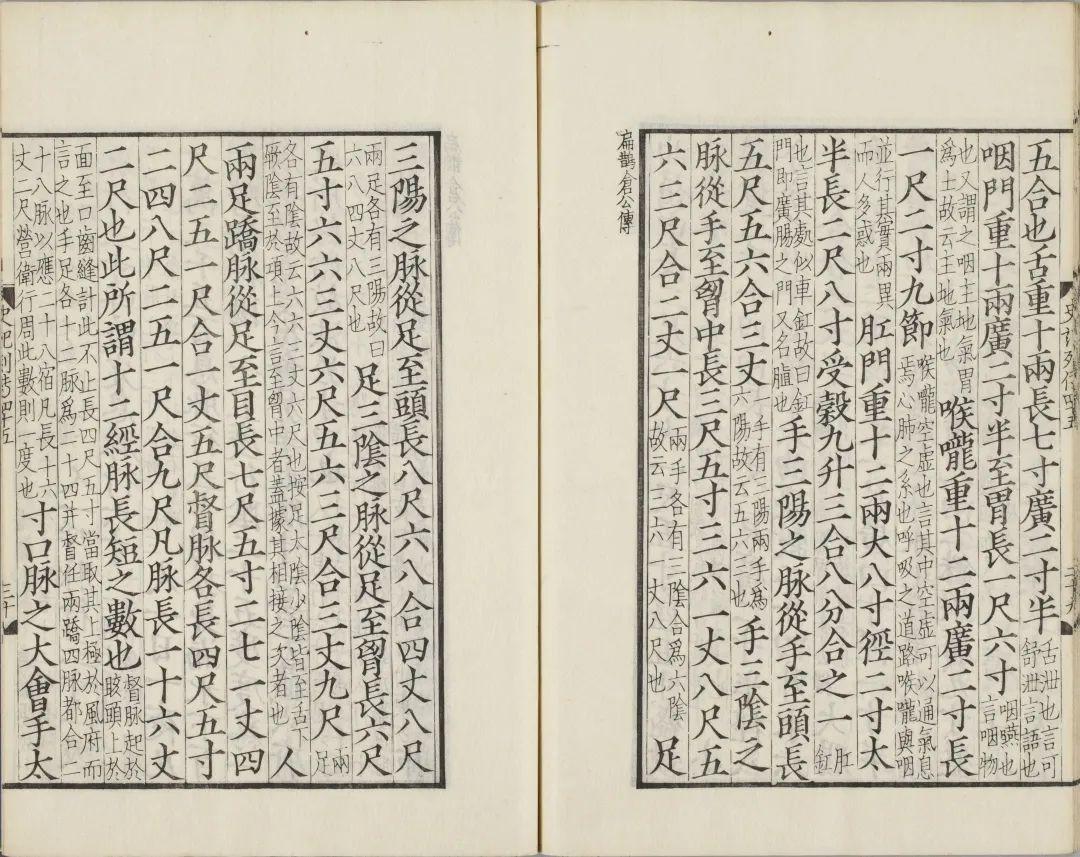 五合也舌重十兩長七寸廣二寸半舌泄也言可舒泄言語也
咽門重十兩廣二寸半至胃長一尺六寸咽嚥也言咽物
也又謂之咽主地氣胃為土故云主地氣也喉嚨重十二兩廣二寸長
一尺二寸九節喉嚨空虛也言其中空虛可以通氣息焉心肺之系也呼吸之道路喉嚨與咽
並行其實兩異而人多惑也肛門重十二兩大八寸徑二寸太
半長二尺八寸受穀九升三合八分合之一肛釭
也言其處似車釭故曰釭門即廣腸之門又名䐈也手三陽之脉從手至頭長
五尺五六合三丈一手有三陽兩手為六陽故云五六三也手三陰之
脉從手至胷中長三尺五寸三六一丈八尺五
六三尺合二丈一尺兩手各有三陰合為六陰故云三六一丈八尺也足
扁鵲倉公傳
三陽之脉從足至頭長八尺六八合四丈八尺
兩足各有三陽故曰六八四丈八尺也足三陰之脉從足至胷長六尺
五寸六六三丈六尺五六三尺合三丈九尺兩足
各有陰故云六六三丈六尺也按足太陰少陰皆至舌下厥陰至於項上今言至胷中者蓋據其相接之次者也人
兩足蹻脉從足至目長七尺五寸二七一丈四
尺二五一尺合一丈五尺督脉各長四尺五寸
二四八尺二五一尺合九尺凡脉長一十六丈
二尺也此所謂十二經脉長短之數也督脉起於䐉頭上於
面至口齒縫計此不止長四尺五寸當取其上極於風府而言之也手足各十二脉為二十四并督任兩蹻四脉都合二
十八脉以應二十八宿凡長十六丈二尺營衛行周此數則一度也寸口脉之大會手太